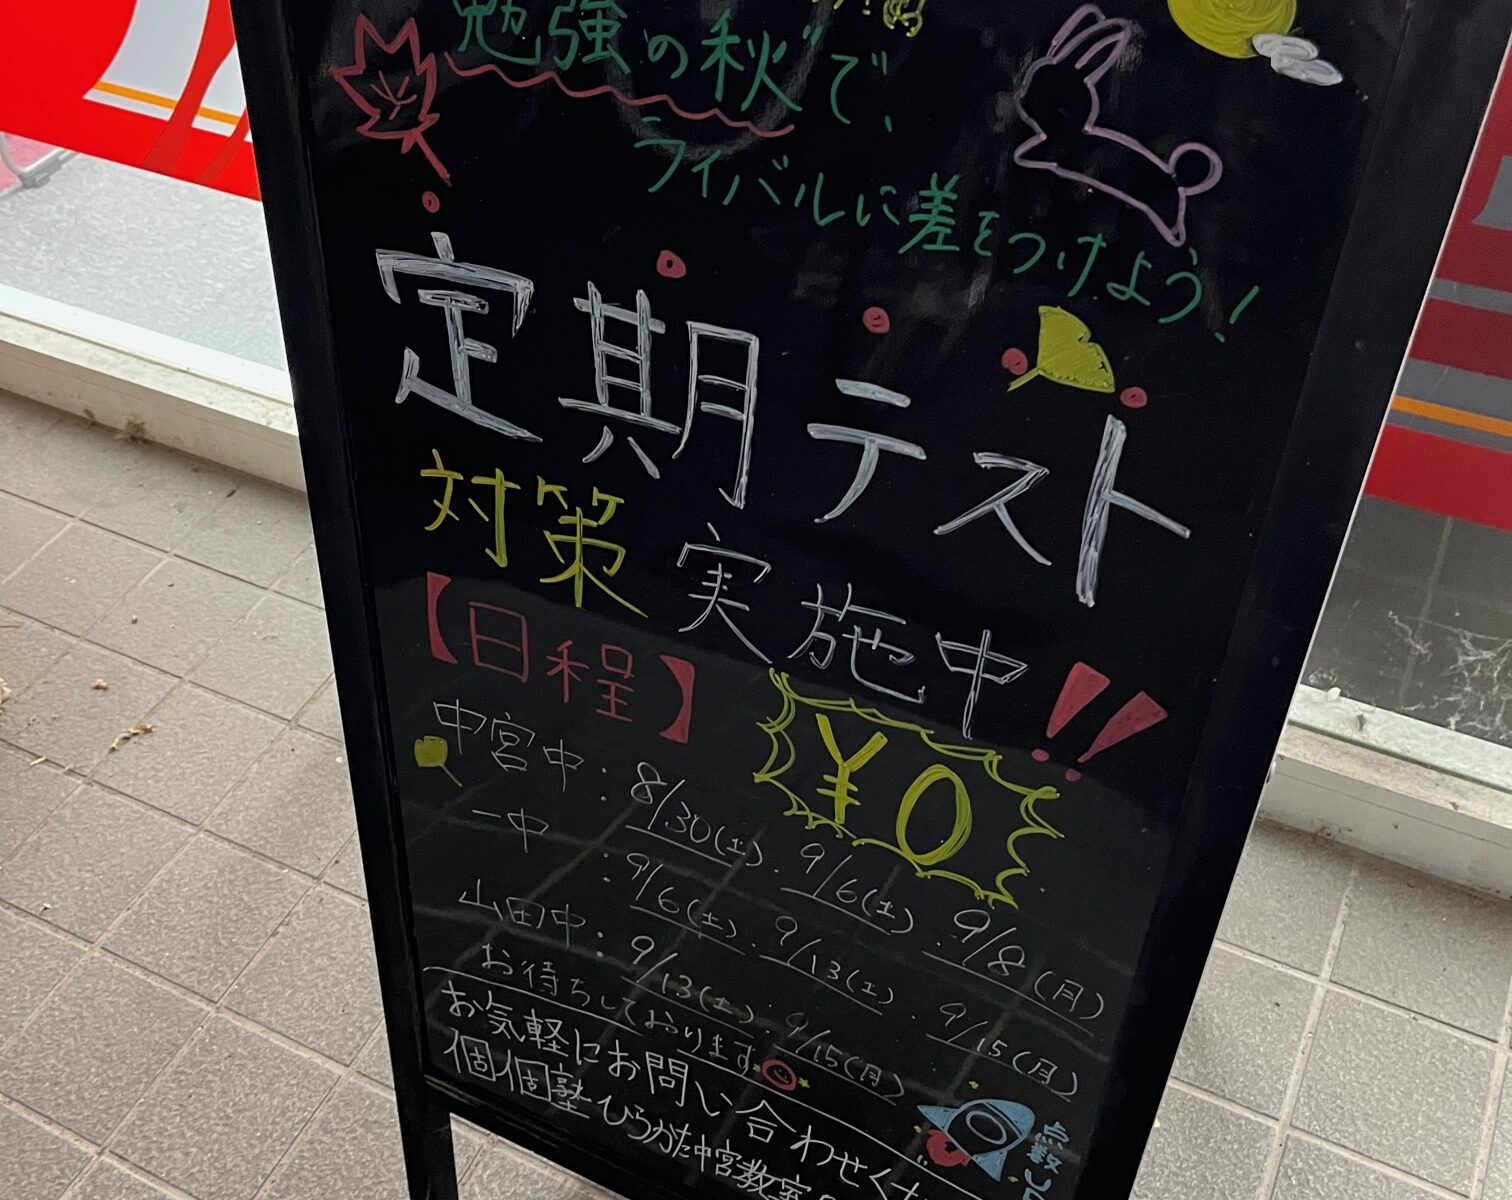 勉強の秋で、
ライバルに差をつけよう!
定期テスト
対策実施中!!
【日程】
¥0
中宮中:8/30(土)・9/6(土)・9/8(月)
一中:9/6(土)・9/13(土)・9/15(月)
山田中:9/13(土)・9/15(月)
お待ちしております
お気軽にお問い合わせくだ
個個塾ひらかた中宮教室
点数U